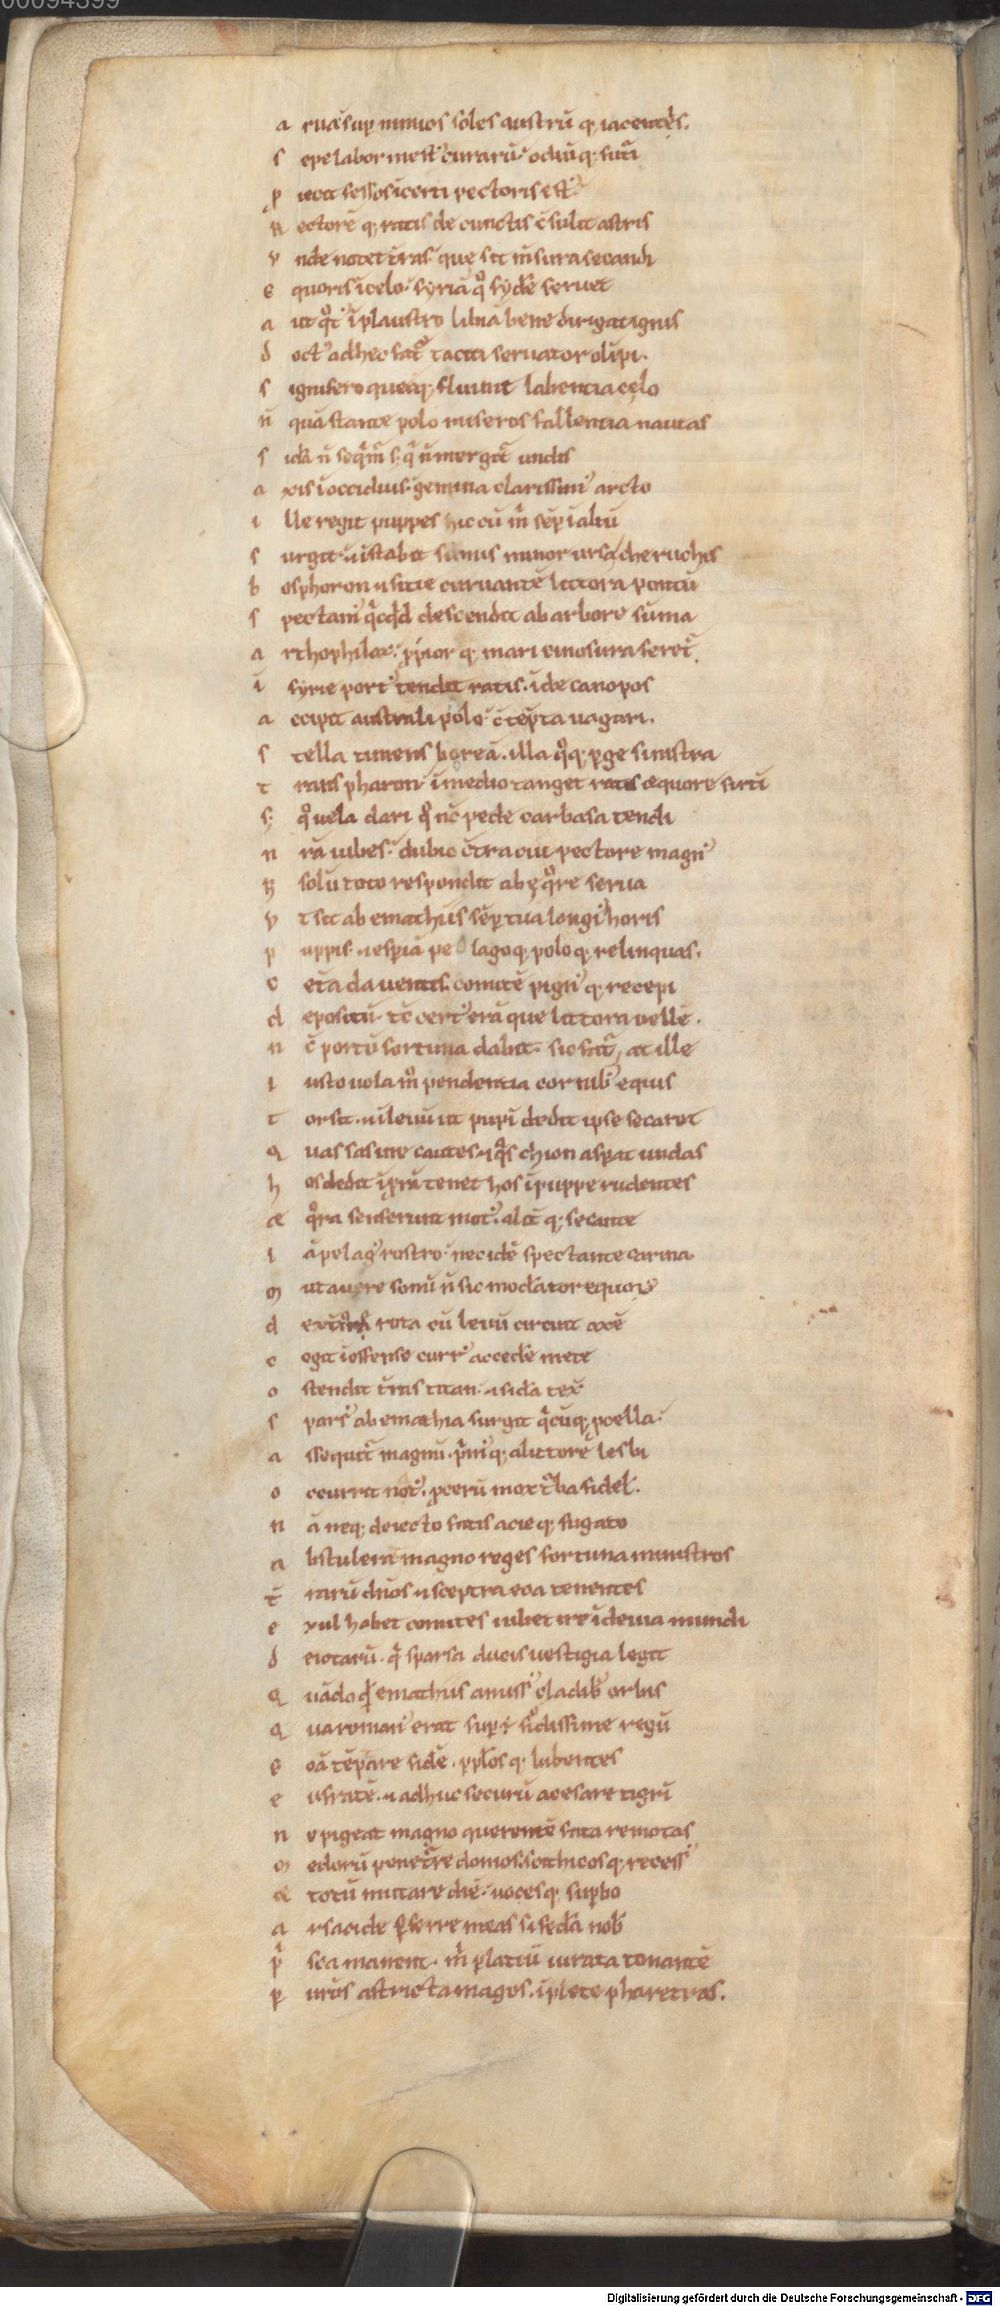 a ruaśup nimios soles austrū q; iacentēs.
s epe labor mest᾽ curarū᾽ odiūq; futi᷑
p uoit fessos icerti pectoris ē᾽
R ectorē q; ratis de cunctis c̄sulit astris
v nde notet t̄ras᾽ que sit m̄sura secandi
e quoris icelo᾽ syriā q̊ syd̄e seruet
a ut q̊t᾽ īplaustro libiā bene dirigat ignis
d oct᾽ ad hec fat᷑ taciti seruator olīpi.
s ignifero quecūq; fluunt labentia cęlo
n̄ quā stante polo miseros fallentia nautas
s id̄a n̄ seq̄m᷑ s; q̄ n̄ mergit᷑ undis
a xis īocciduus᷑ gemina clarissim᾽ arcto
i lle regit puppes hic cū m̄ sep īaltū
s urget ⁊ istabit sūmis minor ursa cheruchis
b osphoron ⁊ sitie curuantē littora pontū
s pectam᾽ q̄cq̄d descendit ab arbore sūma
a rthophilax᷑ ꝓpior q; mari cinosura feret᷑
i syrie port᾽ tendit ratis. īde canopos
a ccipit australi polo᷑ c̄tēpta uagari.
s tella timens boreā. illa q̊q; pge sinistra
t rans pharon᷑ īmedio tanget ratis æquore sirtī
s; q̊ uela dari q̊ nc̄ pede carbasa tendi
n r̄a iubes᷑ dubio c̄tra cui pectore magn᾽
h̄ solū toto respondit ab ęq̊re serua
v t sit ab emathiis sēp tua longi᾽ horis
p uppis ⁊ espiā pelago q; polo q; relinquas.
c eta da uentis comitē pign᾽ q; recepi
d epositū᷑ tc̄ cert᾽ erā que littora vellē.
n c̄ portū fortuna dabit᷑ sic fat᷑, at ille
i usto uola m̊ pendentia cornib᾽ equis
t orsit. ⁊ ileuū ut pupī dedit ipse secaret
q uas fas ine cautes ⁊ q̊s chion aspat undas
h os dedit īprā tenet hos īpuppe rudentes
æ q̊ra senserunt mot᾽. alit q; secante
i ā pelag᾽ rostro᷑ nec idē spectante carina
m utauere sonū n̄ sic mod̄ator equor᾽
d rota cū leuū circuit axē
c ogit ioffense curr᾽ acced̄e mete
o stendit t̄ras titan ⁊ sid̄a tex᷑
s pars᾽ ab emathia fugit q̄cūq; pcella᷑
a ssequit᷑ magnū᷑ p̄m᾽ q; alittore lesbi
o ccurrit nat᾽. ꝓcerū mox t̄ba fidel᷑.
n ā neq; deiecto fatis acieq; fugato
a bstulerat magno reges fortuna ministros
t̄ rarū dn̄os ⁊ sceptra eoa tenentes
e xul habet comites iubet ire īdeuia mundi
d eiotarū᷑ q̄ sparsa ducis uestigia legit
q uādoq̄d emathiis amiss᾽ cladib᾽ orbis
q ua roman᾽ erat supē fidissime regū
e oā tēptare fidē. ppl̄os q; bibentes
e ufratē. ⁊ adhuc securū acesare tigrī
n e pigeat magno querentē fata remotas
m edorū penet᷑re domos. scithicosq; recess᾽
& totū mutare diē᷑ uocesq; supbo
a rsacide pferre meas si fed̄a nob᷑
p̄ sca manent. m᷑ platiū iurata tonantē
p uros astricta magos. īplete pharetras.
Digitalisierung gefördert durch die Deutsche Forschungsgemeinschaft - DFG